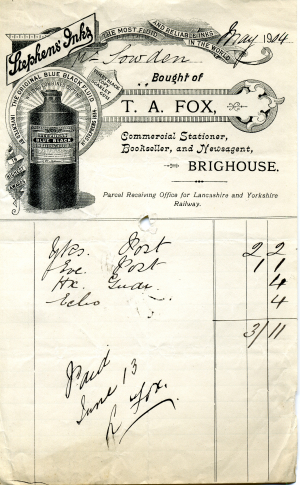 Stephens' Inks
THE MOST FLUID AND RELIABLE INKS IN THE WORLD
May 1904
Mr Sowden
Bought of
THE ORIGINAL BLUE BLACK FLUID
T. A. FOX,
Commercial Stationer,
Bookseller, and Newsagent,
BRIGHOUSE.
Parcel Receiving Office for Lancashire and Yorkshire
Railway.
Yks. Post 2 2
Eve. Post 1 1
Hx. Guar. 4
Echo 4
3/11
Paid
June 13
Fox.